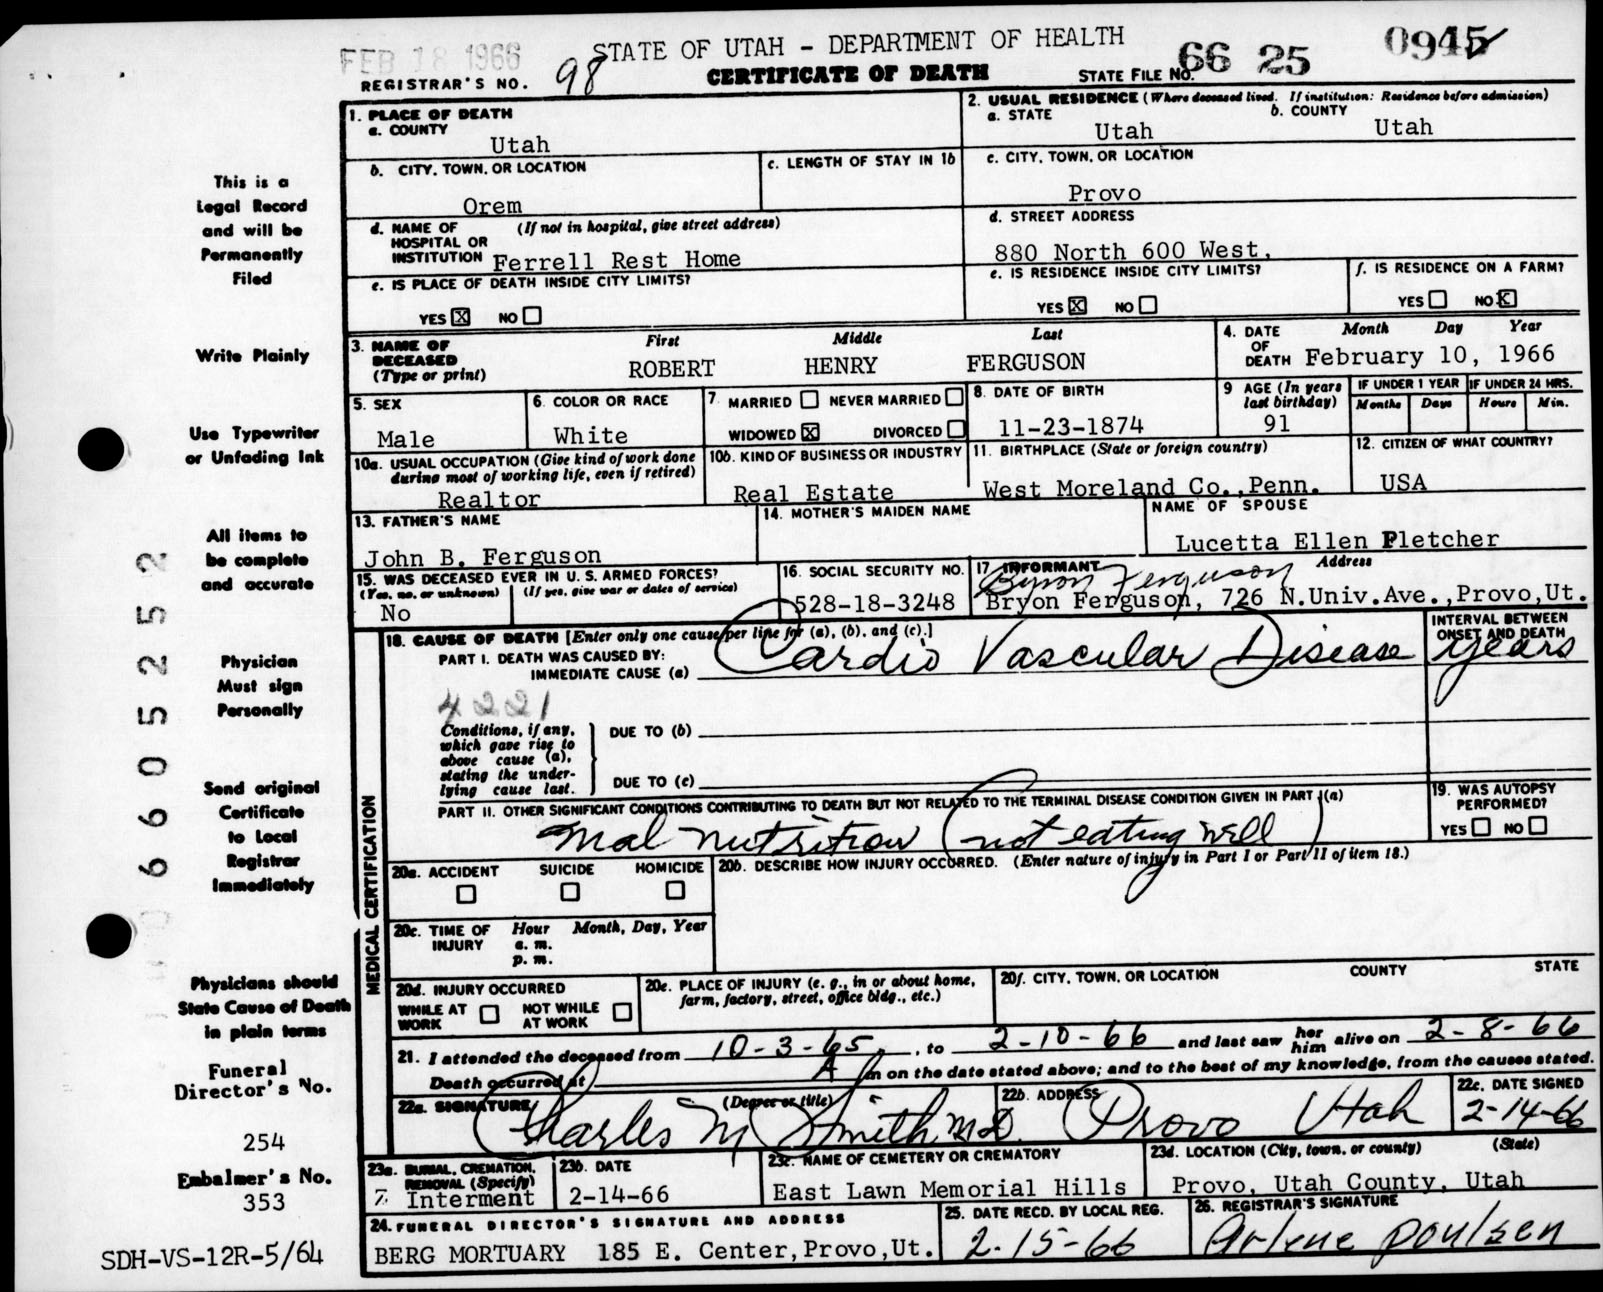 FEB 18 1966
STATE OF UTAH - DEPARTMENT OF HEALTH
CERTIFICATE OF DEATH
REGISTRAR'S NO. 98
STATE FILE NO. 66 25 0945
1. PLACE OF DEATH
a. COUNTY
Utah
2. USUAL RESIDENCE (Where deceased lived. If institution: Residence before admission)
a. STATE
Utah
b. COUNTY
Utah
b. CITY, TOWN, OR LOCATION
Orem
c. LENGTH OF STAY IN 1b
c. CITY, TOWN, OR LOCATION
Provo
d. NAME OF HOSPITAL OR INSTITUTION (If not in hospital, give street address)
Ferrell Rest Home
d. STREET ADDRESS
880 North 600 West,
e. IS PLACE OF DEATH INSIDE CITY LIMITS?
YES X NO
e. IS RESIDENCE INSIDE CITY LIMITS?
YES X NO
f. IS RESIDENCE ON A FARM?
YES NO X
3. NAME OF DECEASED (Type or print)
First Middle Last
ROBERT HENRY FERGUSON
4. DATE OF DEATH
Month Day Year
February 10, 1966
5. SEX
Male
6. COLOR OR RACE
White
7 MARRIED NEVER MARRIED
WIDOWED X DIVORCED
8. DATE OF BIRTH
11-23-1874
9 AGE (In years last birthday)
91
IF UNDER 1 YEAR
Months Days
IF UNDER 24 HRS.
Hours Min.
10a. USUAL OCCUPATION (Give kind of work done during most of working life, even if retired)
Realtor
10b. KIND OF BUSINESS OR INDUSTRY
Real Estate
11. BIRTHPLACE (State or foreign country)
West Moreland Co.,Penn.
12. CITIZEN OF WHAT COUNTRY?
USA
13. FATHER'S NAME
John B. Ferguson
14. MOTHER'S MAIDEN NAME
NAME OF SPOUSE
Lucetta Ellen Pletcher
15. WAS DECEASED EVER IN U. S. ARMED FORCES?
(Yes, no, or unknown) (If yes, give war or dates of service)
No
16. SOCIAL SECURITY NO.
528-18-3248
17 INFORMANT Address
Byron Ferguson
Bryon Ferguson, 726 N.Univ.Ave.,Provo,Ut.
MEDICAL CERTIFICATION
18. CAUSE OF DEATH [Enter only one cause per line for (a), (b), and (c).]
INTERVAL BETWEEN ONSET AND DEATH
PART I. DEATH WAS CAUSED BY:
IMMEDIATE CAUSE (a) Cardio Vascular Disease years
4221
Conditions, if any, which gave rise to above cause (a), stating the underlying cause last.
DUE TO (b)
DUE TO (c)
PART II. OTHER SIGNIFICANT CONDITIONS CONTRIBUTING TO DEATH BUT NOT RELATED TO THE TERMINAL DISEASE CONDITION GIVEN IN PART I(a)
Mal nutrition (not eating well)
19. WAS AUTOPSY PERFORMED?
YES NO
20a. ACCIDENT SUICIDE HOMICIDE
20b. DESCRIBE HOW INJURY OCCURRED. (Enter nature of injury in Part I or Part II of item 18.)
20c. TIME OF INJURY Hour Month, Day, Year
a. m.
p. m.
20d. INJURY OCCURRED
WHILE AT WORK NOT WHILE AT WORK
20e. PLACE OF INJURY (e. g., in or about home, farm, factory, street, office bldg., etc.)
20f. CITY, TOWN, OR LOCATION COUNTY STATE
21. I attended the deceased from 10-3-65, to 2-10-66 and last saw her him alive on 2-8-66
Death occurred at A m on the date stated above; and to the best of my knowledge, from the causes stated.
22a. SIGNATURE (Degree or title)
Charles M Smith M.D.
22b. ADDRESS
Provo Utah
22c. DATE SIGNED
2-14-66
23a. BURIAL, CREMATION, REMOVAL (Specify)
Interment
23b. DATE
2-14-66
23c. NAME OF CEMETERY OR CREMATORY
East Lawn Memorial Hills
23d. LOCATION (City, town, or county) (State)
Provo, Utah County, Utah
24. FUNERAL DIRECTOR'S SIGNATURE AND ADDRESS
BERG MORTUARY 185 E. Center,Provo,Ut.
25. DATE RECD. BY LOCAL REG.
2-15-66
26. REGISTRAR'S SIGNATURE
Arlene Poulsen
This is a
Legal Record
and will be
Permanently
Filed
Write Plainly
Use Typewriter
or Unfading Ink
All items to
be complete
and accurate
Physician
Must sign
Personally
Send original
Certificate
to Local
Registrar
Immediately
Physicians should
State Cause of Death
in plain terms
Funeral
Director's No.
254
Embalmer's No.
353
SDH-VS-12R-5/64
660525252